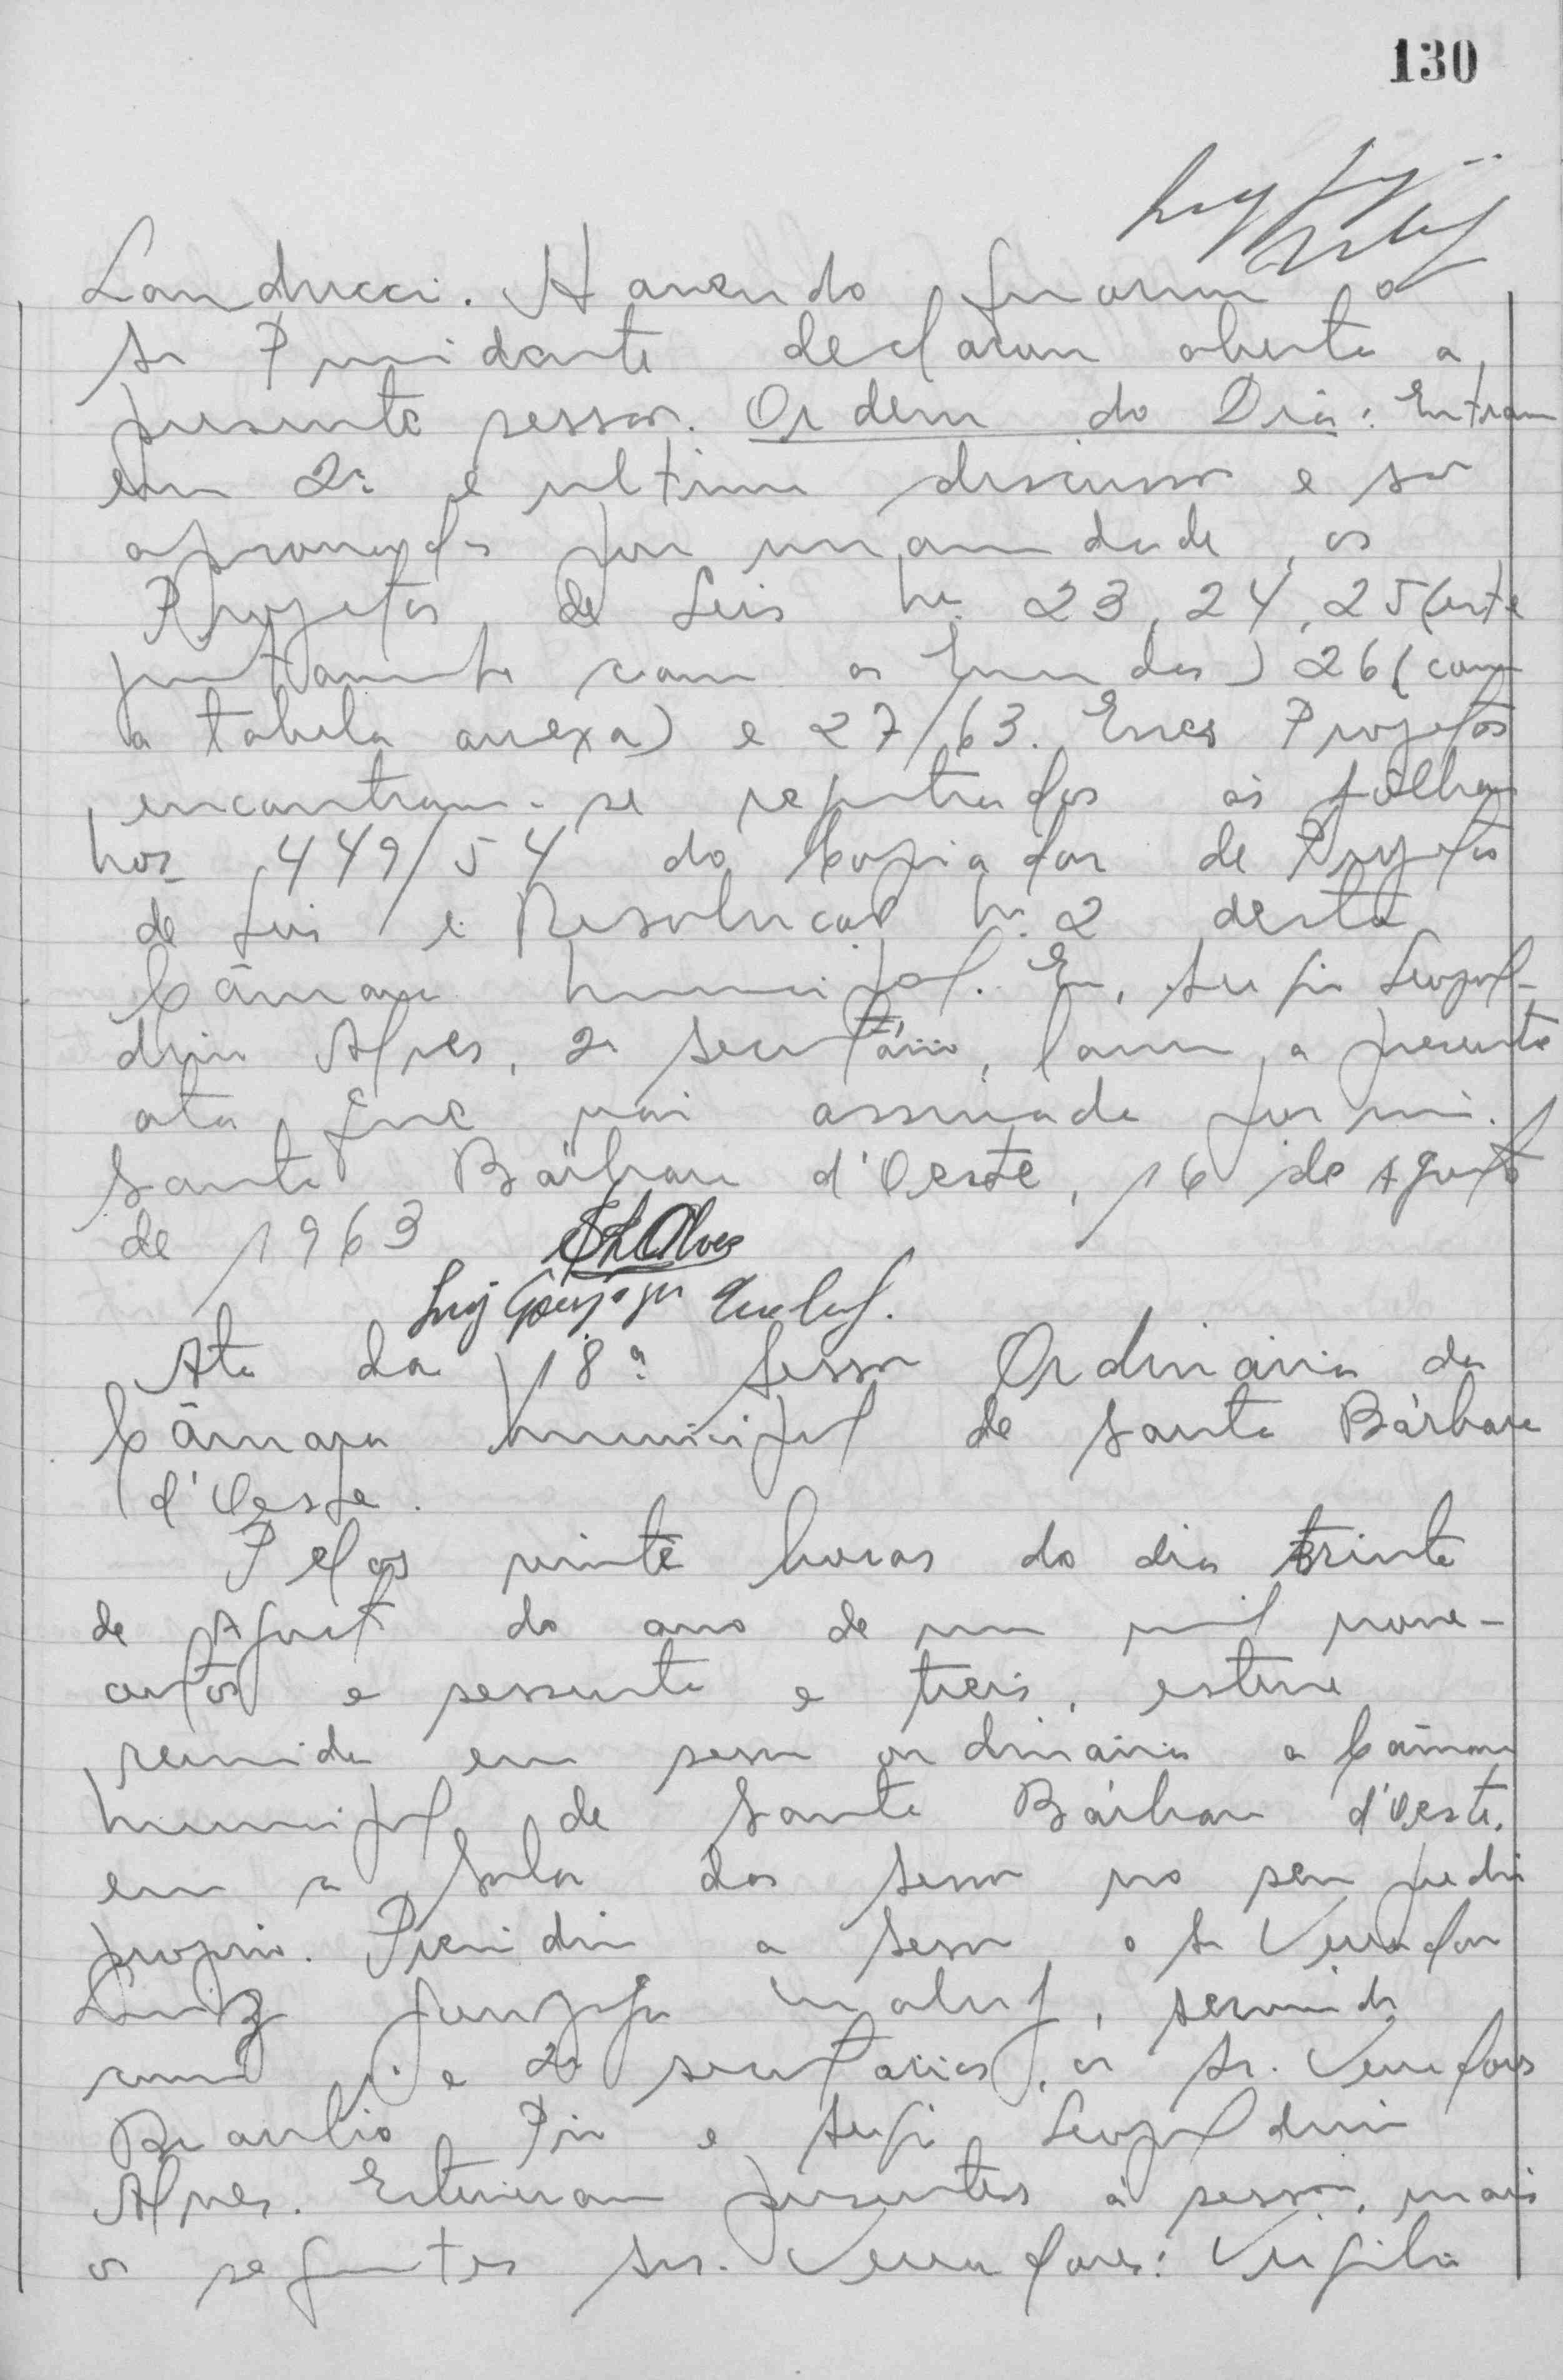 130
Landucci. Havendo quorum o
Sr Presidente declarou aberta a
presente sessão. Ordem do Dia: Entram
em 2ª e ultima discussão e são
aprovados por unanimidade, os
Projetos de Leis nº 23, 24, 25 (este
juntamente com as Emendas) 26 (com
a tabela anexa) e 27/63. Esses Projetos
encontram-se registrados às fôlhas
nos 449/54 do Copiador de Projetos
de Leis e Resolucões nº 2 desta
Câmara Municipal. Eu, Leopol-
dino Alves, 2º secretário, lavrei a presente
ata que vai assinada por mim.
Santa Bárbara d'Oeste, 16 de Agosto
de 1963
SLAlves
Luiz Gonzaga Maluf.
Ata da 18ª Sessão Ordinária da
Câmara Municipal de Santa Bárbara
d'Oeste.
Pelas vinte horas do dia trinta
de Agosto do ano de um mil nove-
centos e sessenta e treis, esteve
reunida em sessão ordinária a Câmara
Municipal de Santa Bárbara d'Oeste,
em a Sala das Sessões no seu predio
proprio. Presidiu a Sessão, o Sr Vereador
Luiz Gonzaga Maluf, servindo
como 1º e 2º secretarios, os Srs. Vereadores
Braulio Pio e Leopoldino
Alves. Estiveram presentes à sessão, mais
os seguintes Srs. Vereadores: Virgilio